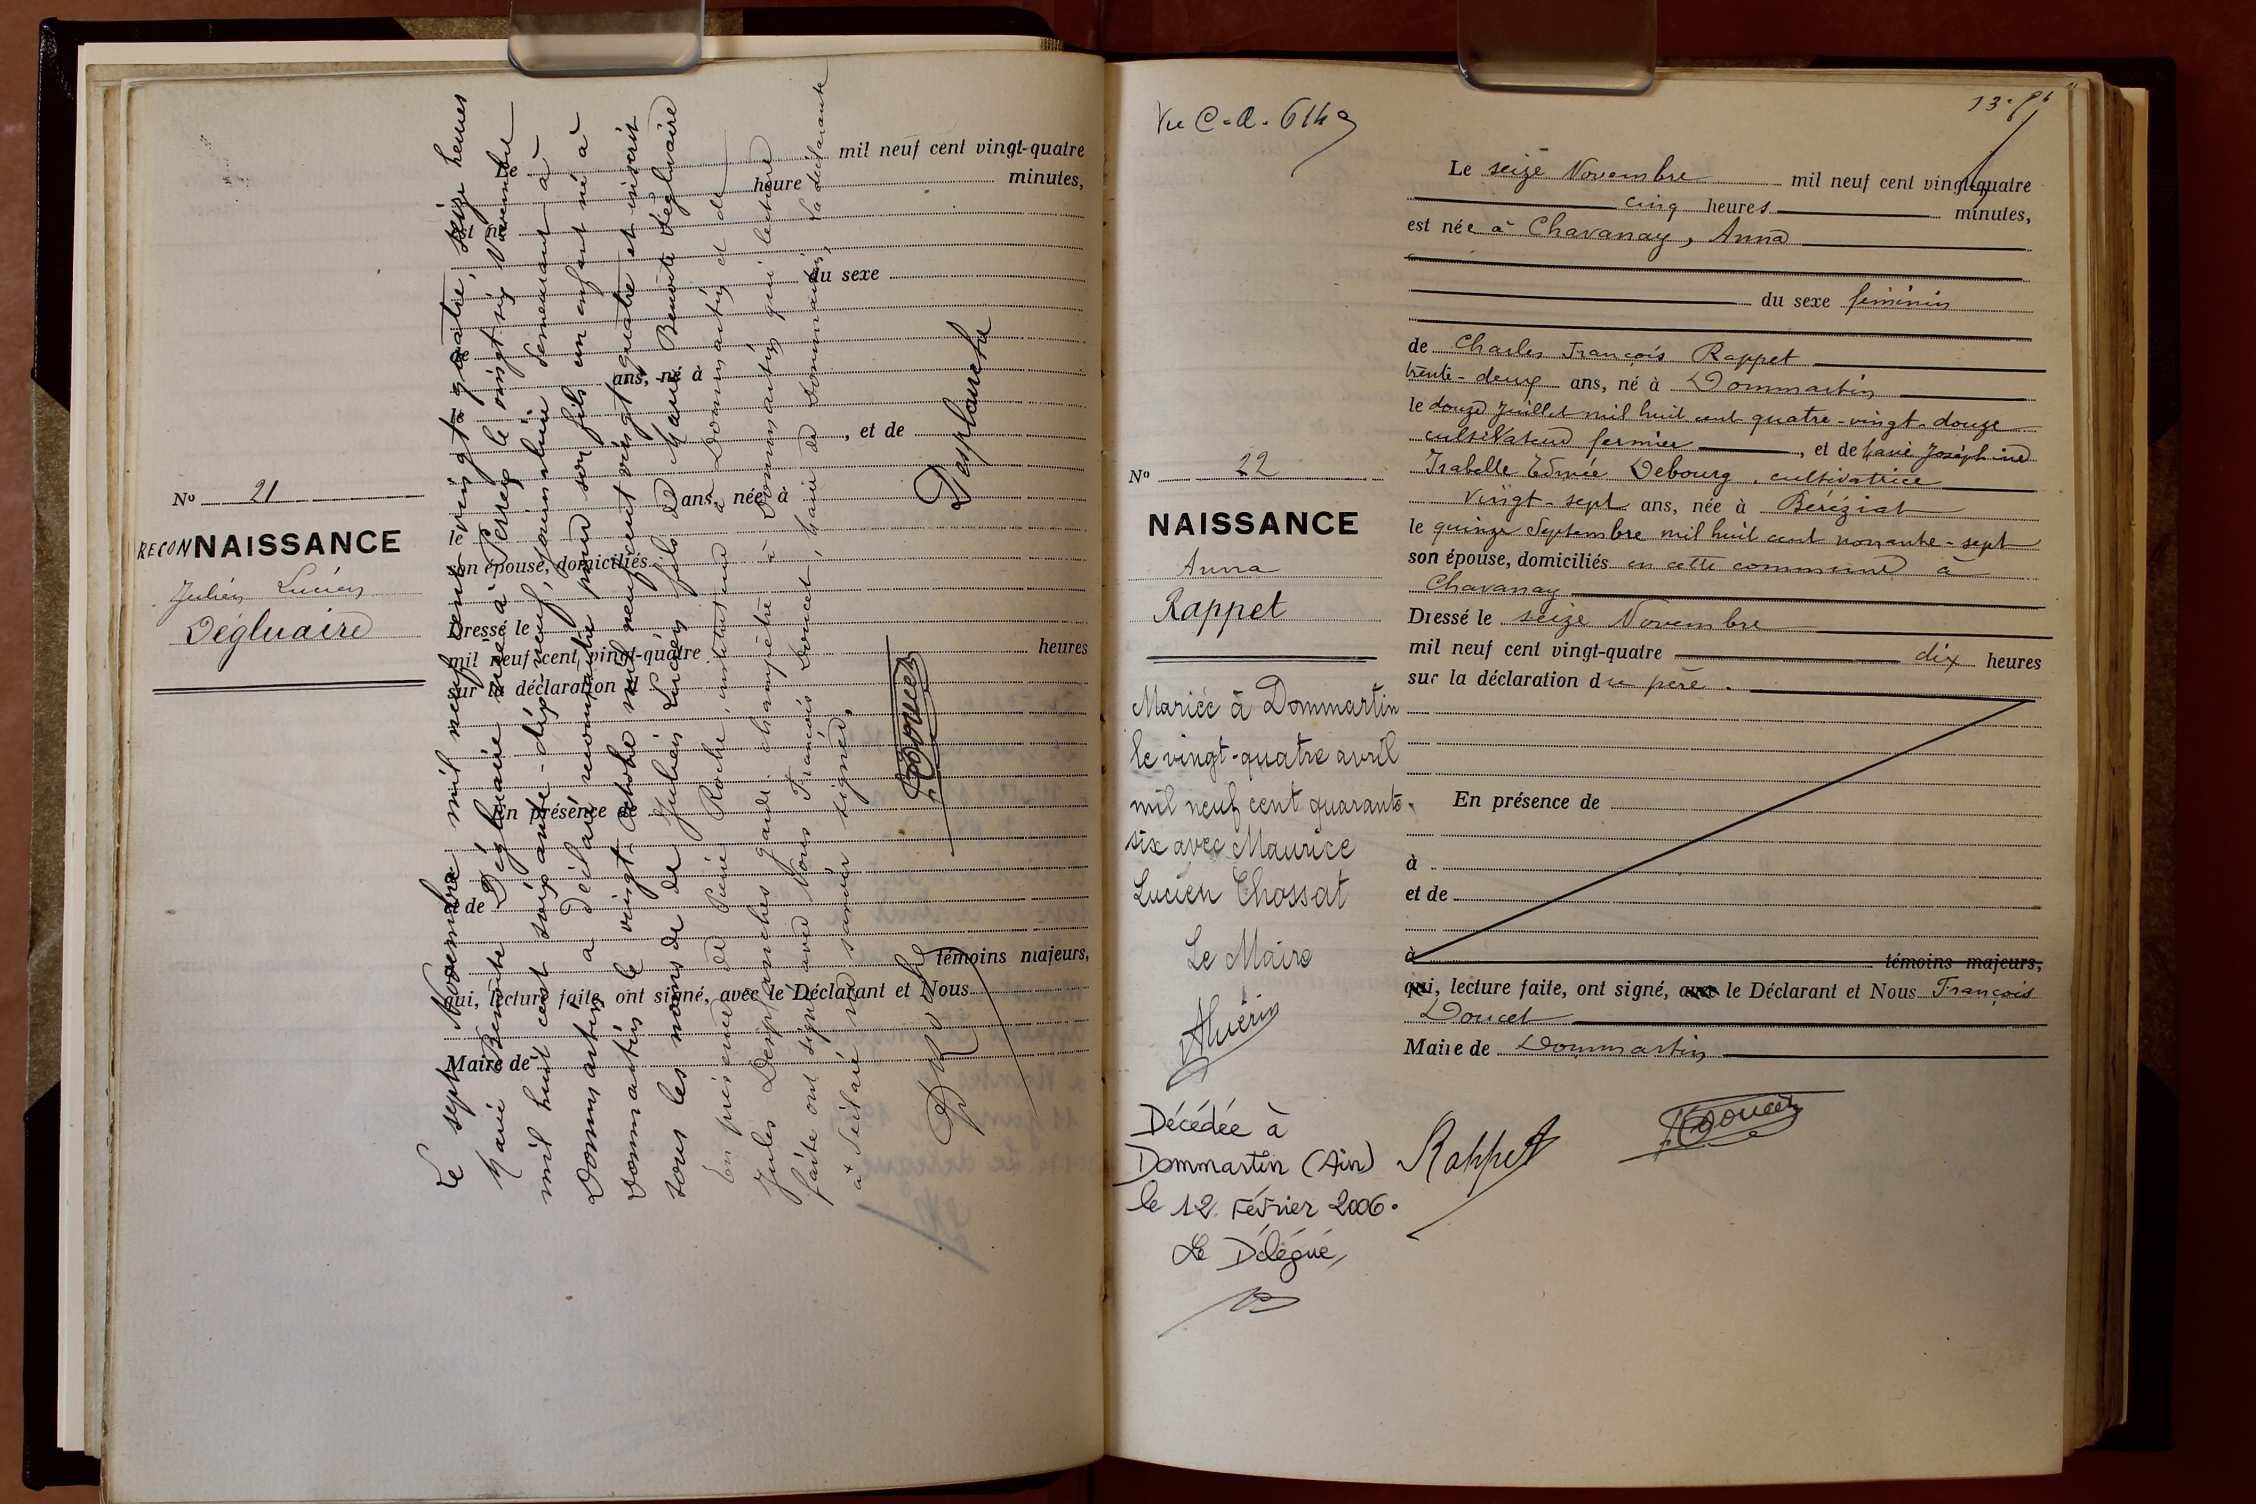 N° 21
RECONNAISSANCE
Julien Lucien
Dégluaire
Le mil neuf cent vingt-quatre
heure minutes,
est né
du sexe
de
ans, né à
le
, et de
ans, née à
le
son épouse, domiciliés
Dressé le
mil neuf cent vingt-quatre heures
sur la déclaration d
En présence de
et de
témoins majeurs,
qui, lecture faite, ont signé, avec le Déclarant et Nous
Maire de
Le sept Novembre mil neuf cent vingt-quatre, seize heures
Marie Benoite Dégluaire née à Perrex le vingt six Novembre
mil huit cent soixante-dix-neuf, journalière demeurant à
Dommartin a déclaré reconnaître pour son fils un enfant né à
Dommartin le vingt Octobre mil neuf cent vingt quatre et inscrit
sous les noms de de Julien Lucien fils de Marie Benoite Dégluaire
En présence de Roche, instituteur à Dommartin et de
Jules Desplanches garde-champêtre à Dommartin qui lecture
faite ont signé avec Nous François Doucet, Maire de Dommartin, la déclarante
a déclaré ne savoir signer.
Desplanche
F Doucet
Roche
Vu C.A.
Le seize Novembre mil neuf cent vingt-quatre
cinq heures minutes,
est née à Chavanay, Anna
du sexe féminin
de Charles François Rappet
trente-deux ans, né à Dommartin
le douze Juillet mil huit cent quatre-vingt-douze
cultivateur fermier , et de Marie Joséphine
Isabelle Edmée Debourg, cultivatrice
vingt-sept ans, née à Béréziat
le quinze Septembre mil huit cent nonante-sept
son épouse, domiciliés en cette commune à
Chavanay
Dressé le seize Novembre
mil neuf cent vingt-quatre dix heures
sur la déclaration du père.
En présence de
à
et de
à témoins majeurs,
qui, lecture faite, ont signé, avec le Déclarant et Nous François
Doucet
Maire de Dommartin
N° 22
NAISSANCE
Anna
Rappet
Mariée à Dommartin
le vingt-quatre avril
mil neuf cent quarante-
six avec Maurice
Lucien Chossat
Le Maire
Guérin
Décédée à
Dommartin (Ain)
le 12 Février 2006.
Le Délégué,
Rappet
F Doucet